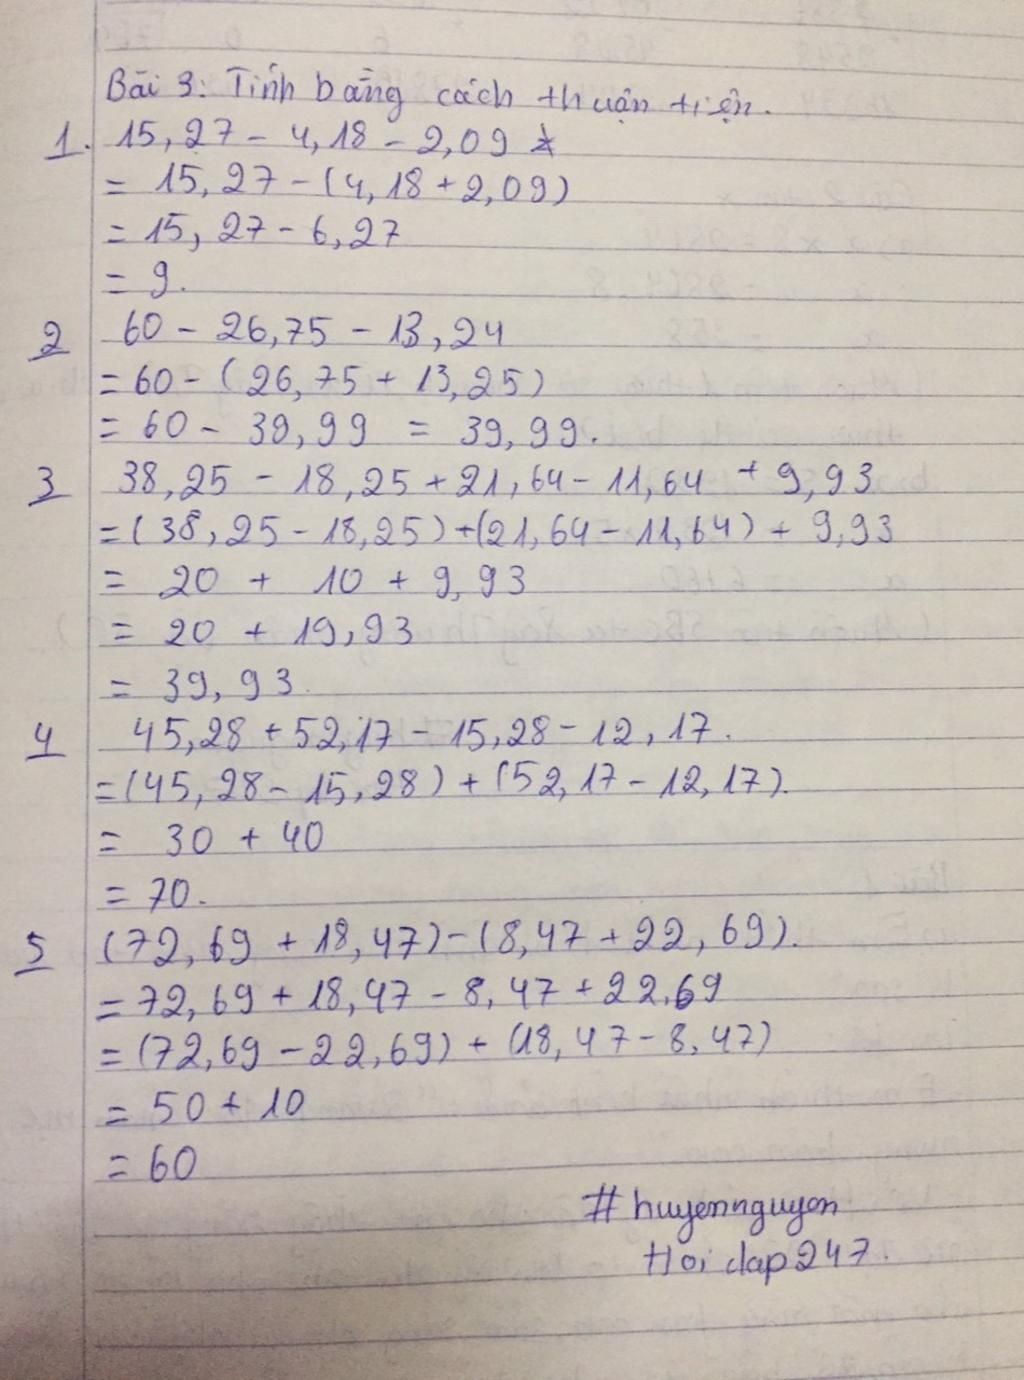 Bài 3: Tính bằng cách thuận tiện.
1. 15,27 - 4,18 - 2,09
= 15,27 - (4,18 + 2,09)
= 15,27 - 6,27
= 9.
2 60 - 26,75 - 13,24
= 60 - (26,75 + 13,25)
= 60 - 39,99 = 39,99.
3 38,25 - 18,25 + 21,64 - 11,64 + 9,93
= (38,25 - 18,25) + (21,64 - 11,64) + 9,93
= 20 + 10 + 9,93
= 20 + 19,93
= 39,93.
4 45,28 + 52,17 - 15,28 - 12,17.
= (45,28 - 15,28) + (52,17 - 12,17).
= 30 + 40
= 70.
5 (72,69 + 18,47) - (8,47 + 22,69).
= 72,69 + 18,47 - 8,47 + 22,69
= (72,69 - 22,69) + (18,47 - 8,47)
= 50 + 10
= 60
#huyennguyen
Hoi dap 247.